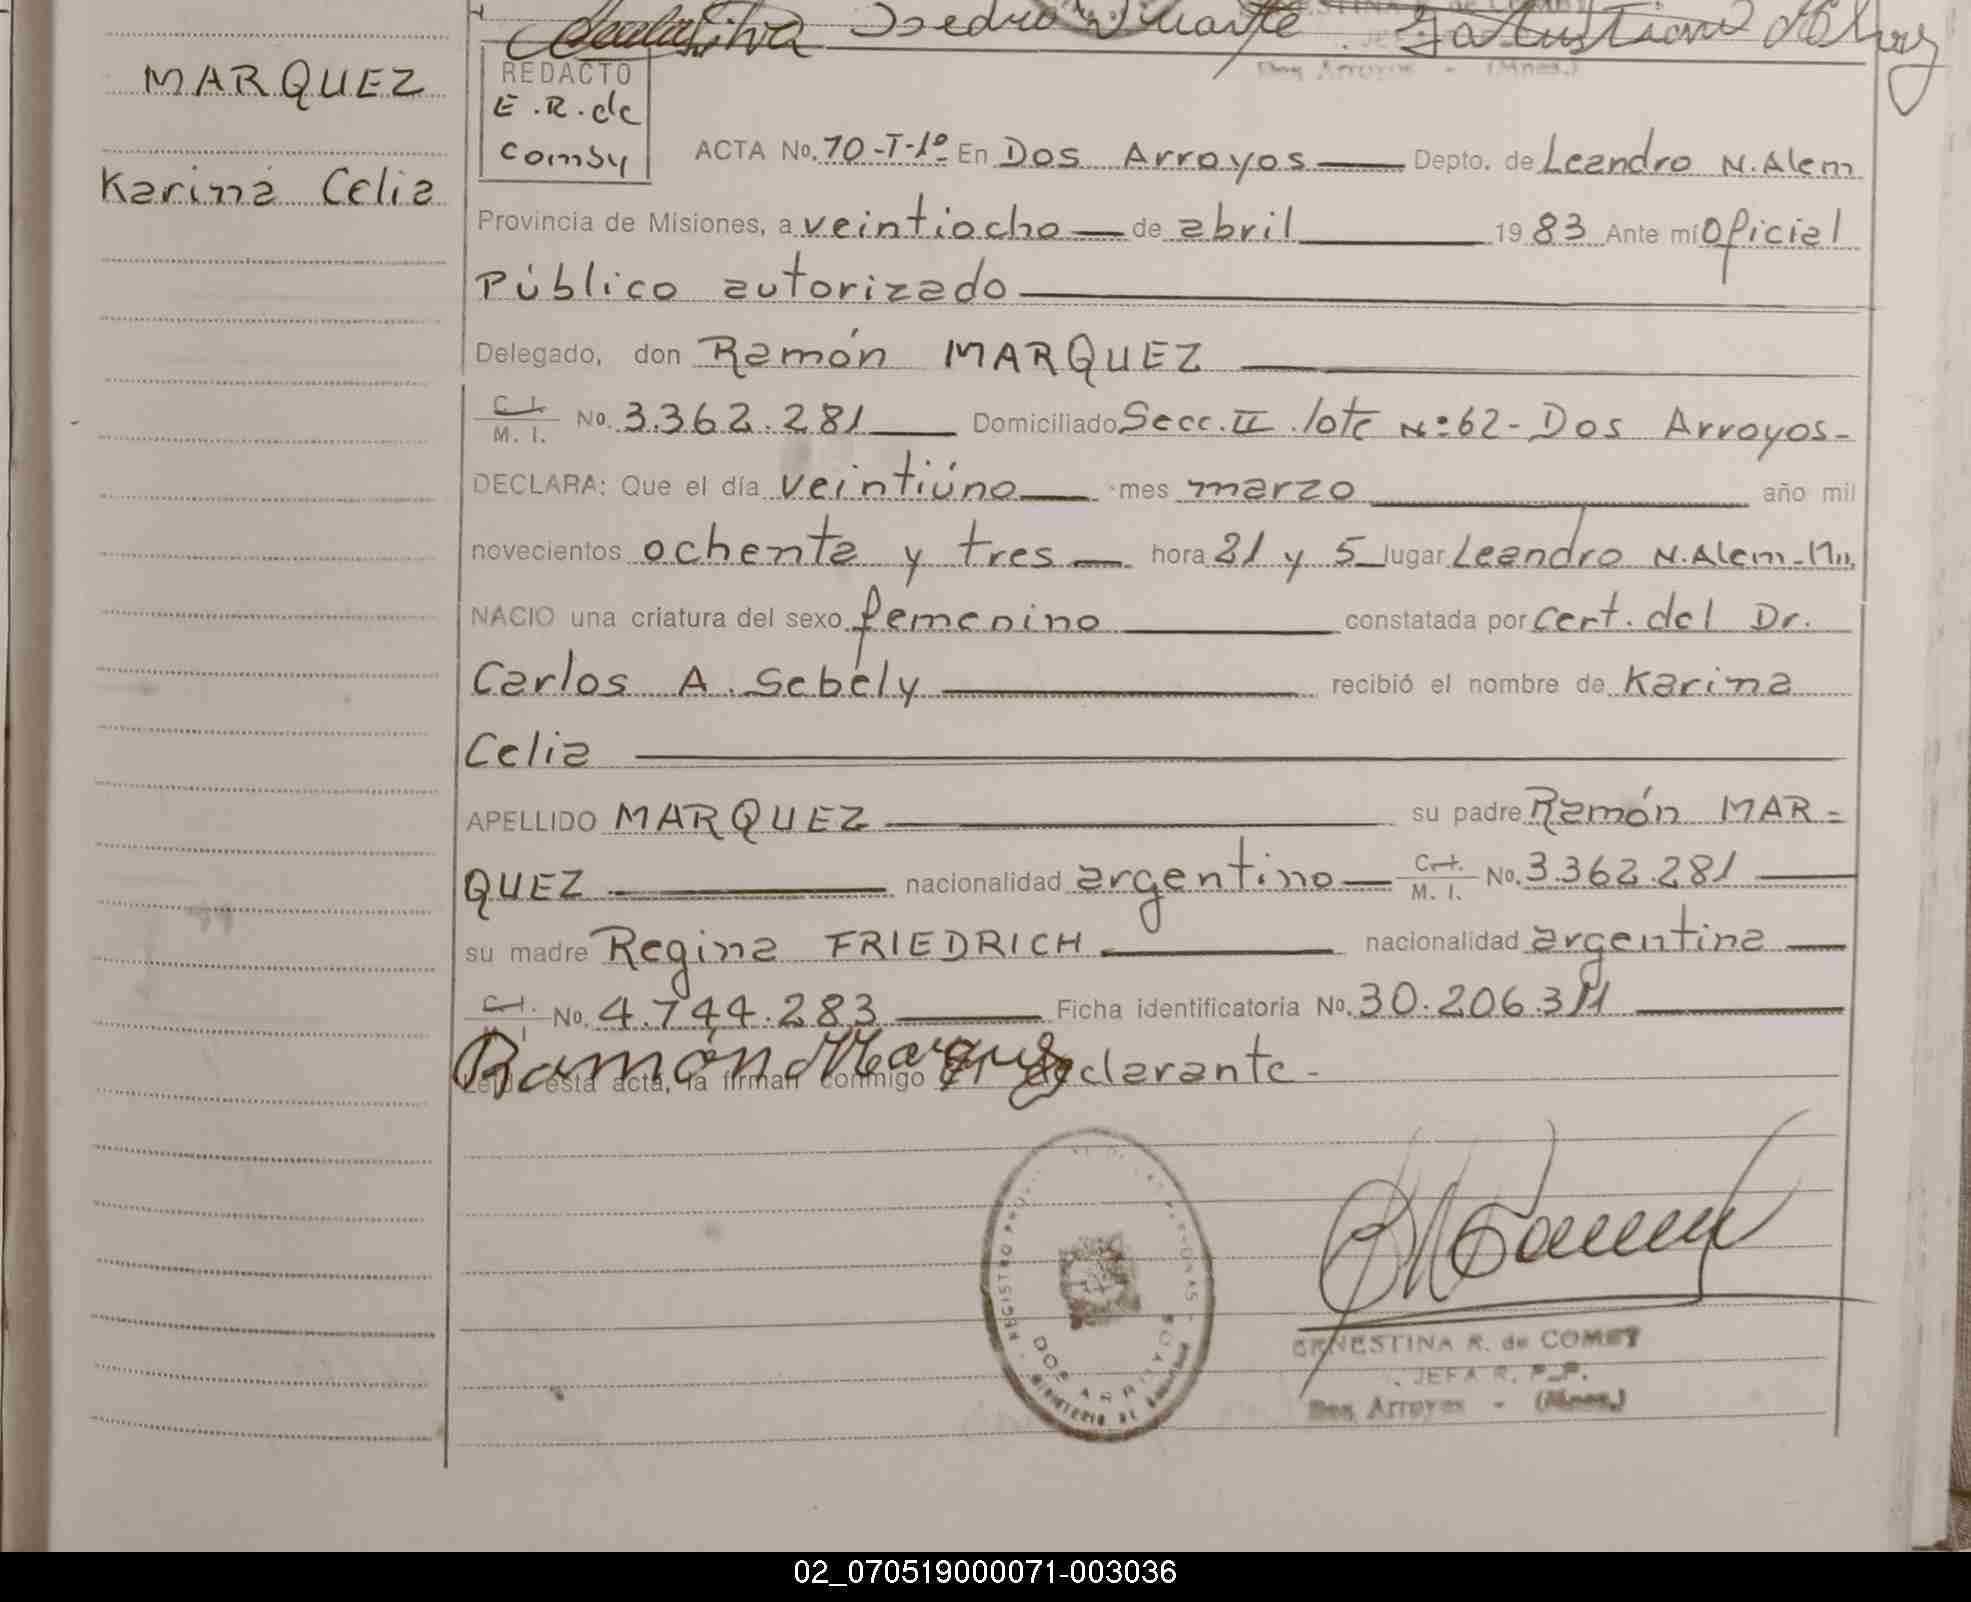 Silva Pedro Duarte
Dos Arroyos - (Mnes.)
MARQUEZ
Karina Celia
REDACTO
E.R. de
Comsy
ACTA No. 70-T-1º En Dos Arroyos Depto. de Leandro N. Alem
Provincia de Misiones, a veintiocho de abril 1983 Ante mí Oficial
Público autorizado
Delegado, don Ramón MARQUEZ
C.I. M.I. No. 3.362.281 Domiciliado Secc. II lote Nº 62 - Dos Arroyos-
DECLARA: Que el día veintiúno mes marzo año mil
novecientos ochenta y tres hora 21 y 5 lugar Leandro N. Alem-
NACIO una criatura del sexo femenino constatada por Cert. del Dr.
Carlos A. Sebély recibió el nombre de Karina
Celia
APELLIDO MARQUEZ su padre Ramón MAR=
QUEZ nacionalidad argentino C.I. M.I. No. 3.362.281
su madre Regina FRIEDRICH nacionalidad argentina
C.I. M.I No. 4.744.283 Ficha identificatoria No. 30.206.311
Ramón Marquez
esta acta, la firman conmigo el declarante-
REGISTRO
DOS ARROYOS
MINISTERIO DE
ERNESTINA R. de COMSY
JEFA R. P. P.
Dos Arroyos - (Mnes.)
02_070519000071-003036